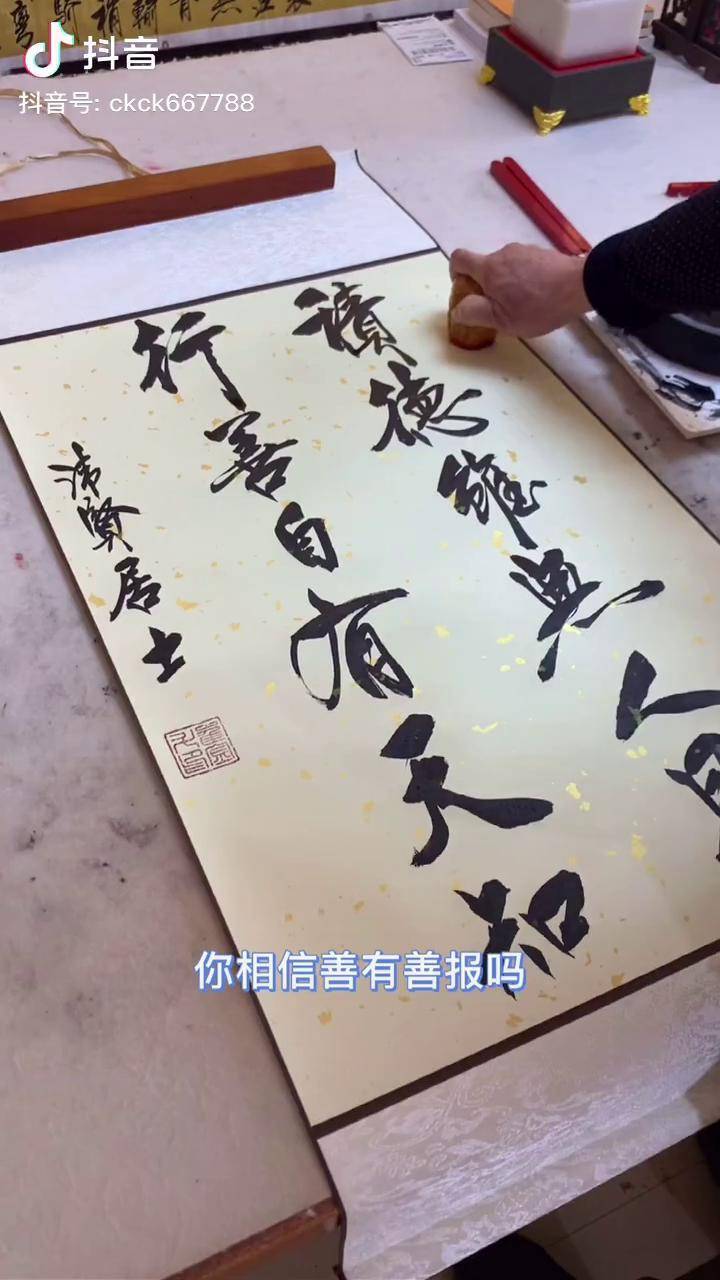 抖音
抖音号: ckck667788
積德雖無人見
行善自有天知
賢居士
你相信善有善报吗